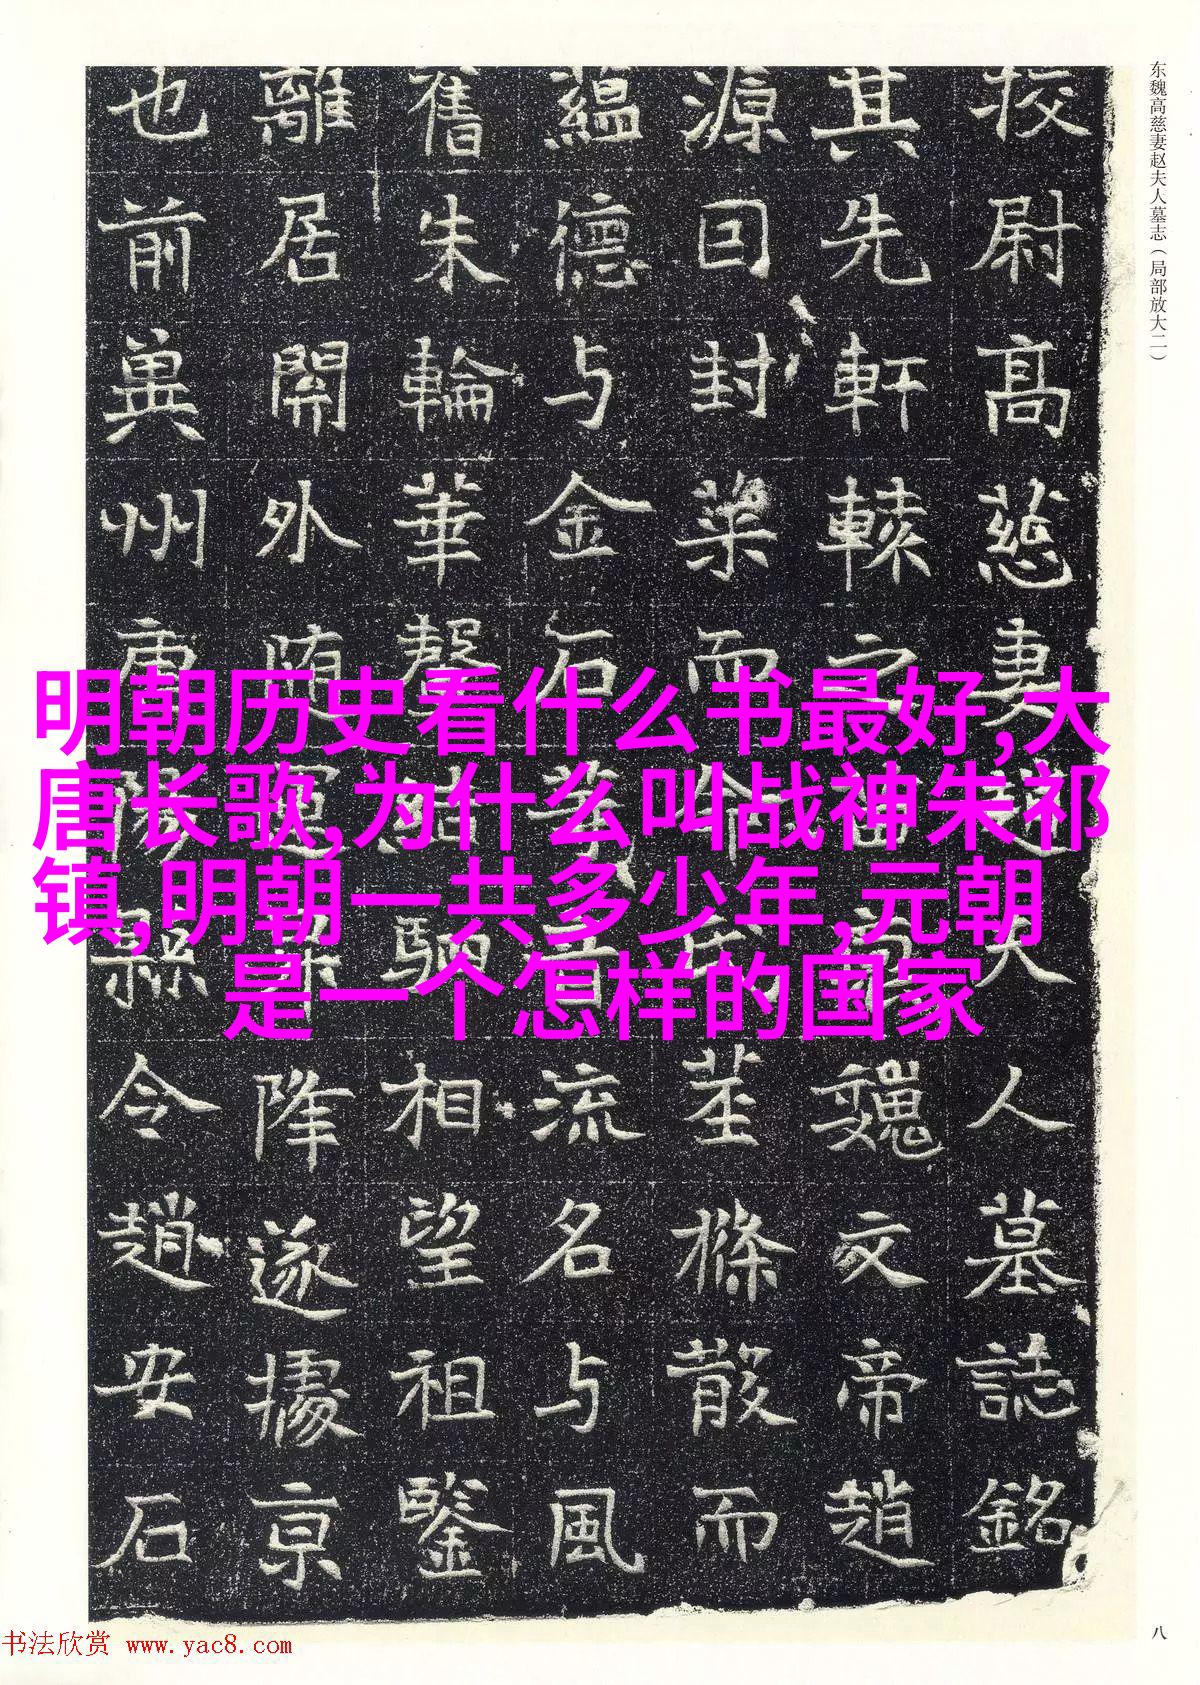 东魏高慈妻赵夫人墓志（局部放大二）
挍尉高慈妻趙夫人墓誌銘
其先軒轅之苗裔魏文帝趙
源囙封而命氏莖條散而
蕴德与金石流名与風
舊朱輪華結駟相望祖鑒
離居關外随運降遂據京
也前兾州南陽縣令趙安石
明朝历史看什么书最好,大
唐长歌,为什么叫战神朱祁
镇,明朝一共多少年,元朝
是一个怎样的国家
八
书法欣赏 www.yac8.com